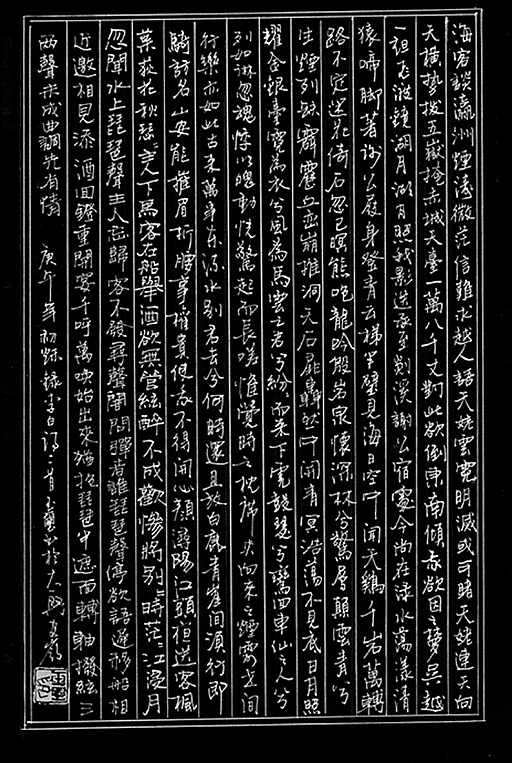 海客談瀛洲煙濤微茫信難求越人語天姥雲霓明滅或可睹天姥連天向
天橫勢拔五嶽掩赤城天臺一萬八千丈對此欲倒東南傾我欲因之夢吳越
一夜飛渡鏡湖月湖月照我影送我至剡溪謝公宿處今尚在淥水蕩漾清
猿啼腳著謝公屐身登青雲梯半壁見海日空中聞天鷄千岩萬轉
路不定迷花倚石忽已暝熊咆龍吟殷岩泉慄深林兮驚層巔雲青兮
生煙列缺霹靂丘巒崩摧洞天石扉轟然中開青冥浩蕩不見底日月照
耀金銀臺霓為衣兮風為馬雲之君兮紛而來下虎鼓瑟兮鸞回車仙之人兮
列如麻忽魂悸以魄動怳驚起而長嗟惟覺時之枕席失向來之煙霞世間
行樂亦如此古來萬事東流水別君去兮何時還且放白鹿青崖間須行即
騎訪名山安能摧眉折腰事權貴使我不得開心顏潯陽江頭夜送客楓
葉荻花秋瑟主人下馬客在船舉酒欲飲無管絃醉不成歡慘將別別時茫江浸月
忽聞水上琵琶聲主人忘歸客不發尋聲闇問彈者誰琵琶聲停欲語遲移船相
近邀相見添酒回燈重開宴千呼萬喚始出來猶抱琵琶半遮面轉軸撥絃三
兩聲未成曲調先有情 庚午年初錄李白詩